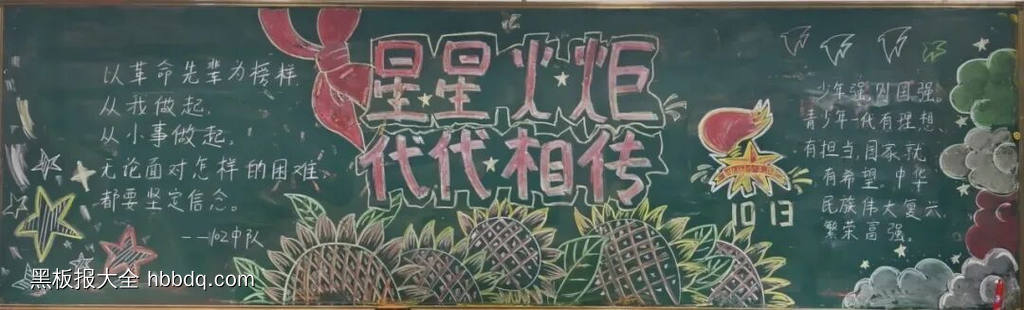 星星火炬
代代相传
以革命先辈为榜样
从我做起，
从小事做起，
无论面对怎样的困难
都要坚定信念。
——102中队
10 13
少年强则国强，
青少年一代有理想、
有担当，国家就
有希望。中华
民族伟大复兴、
繁荣富强。
黑板报大全 hbbdq.com